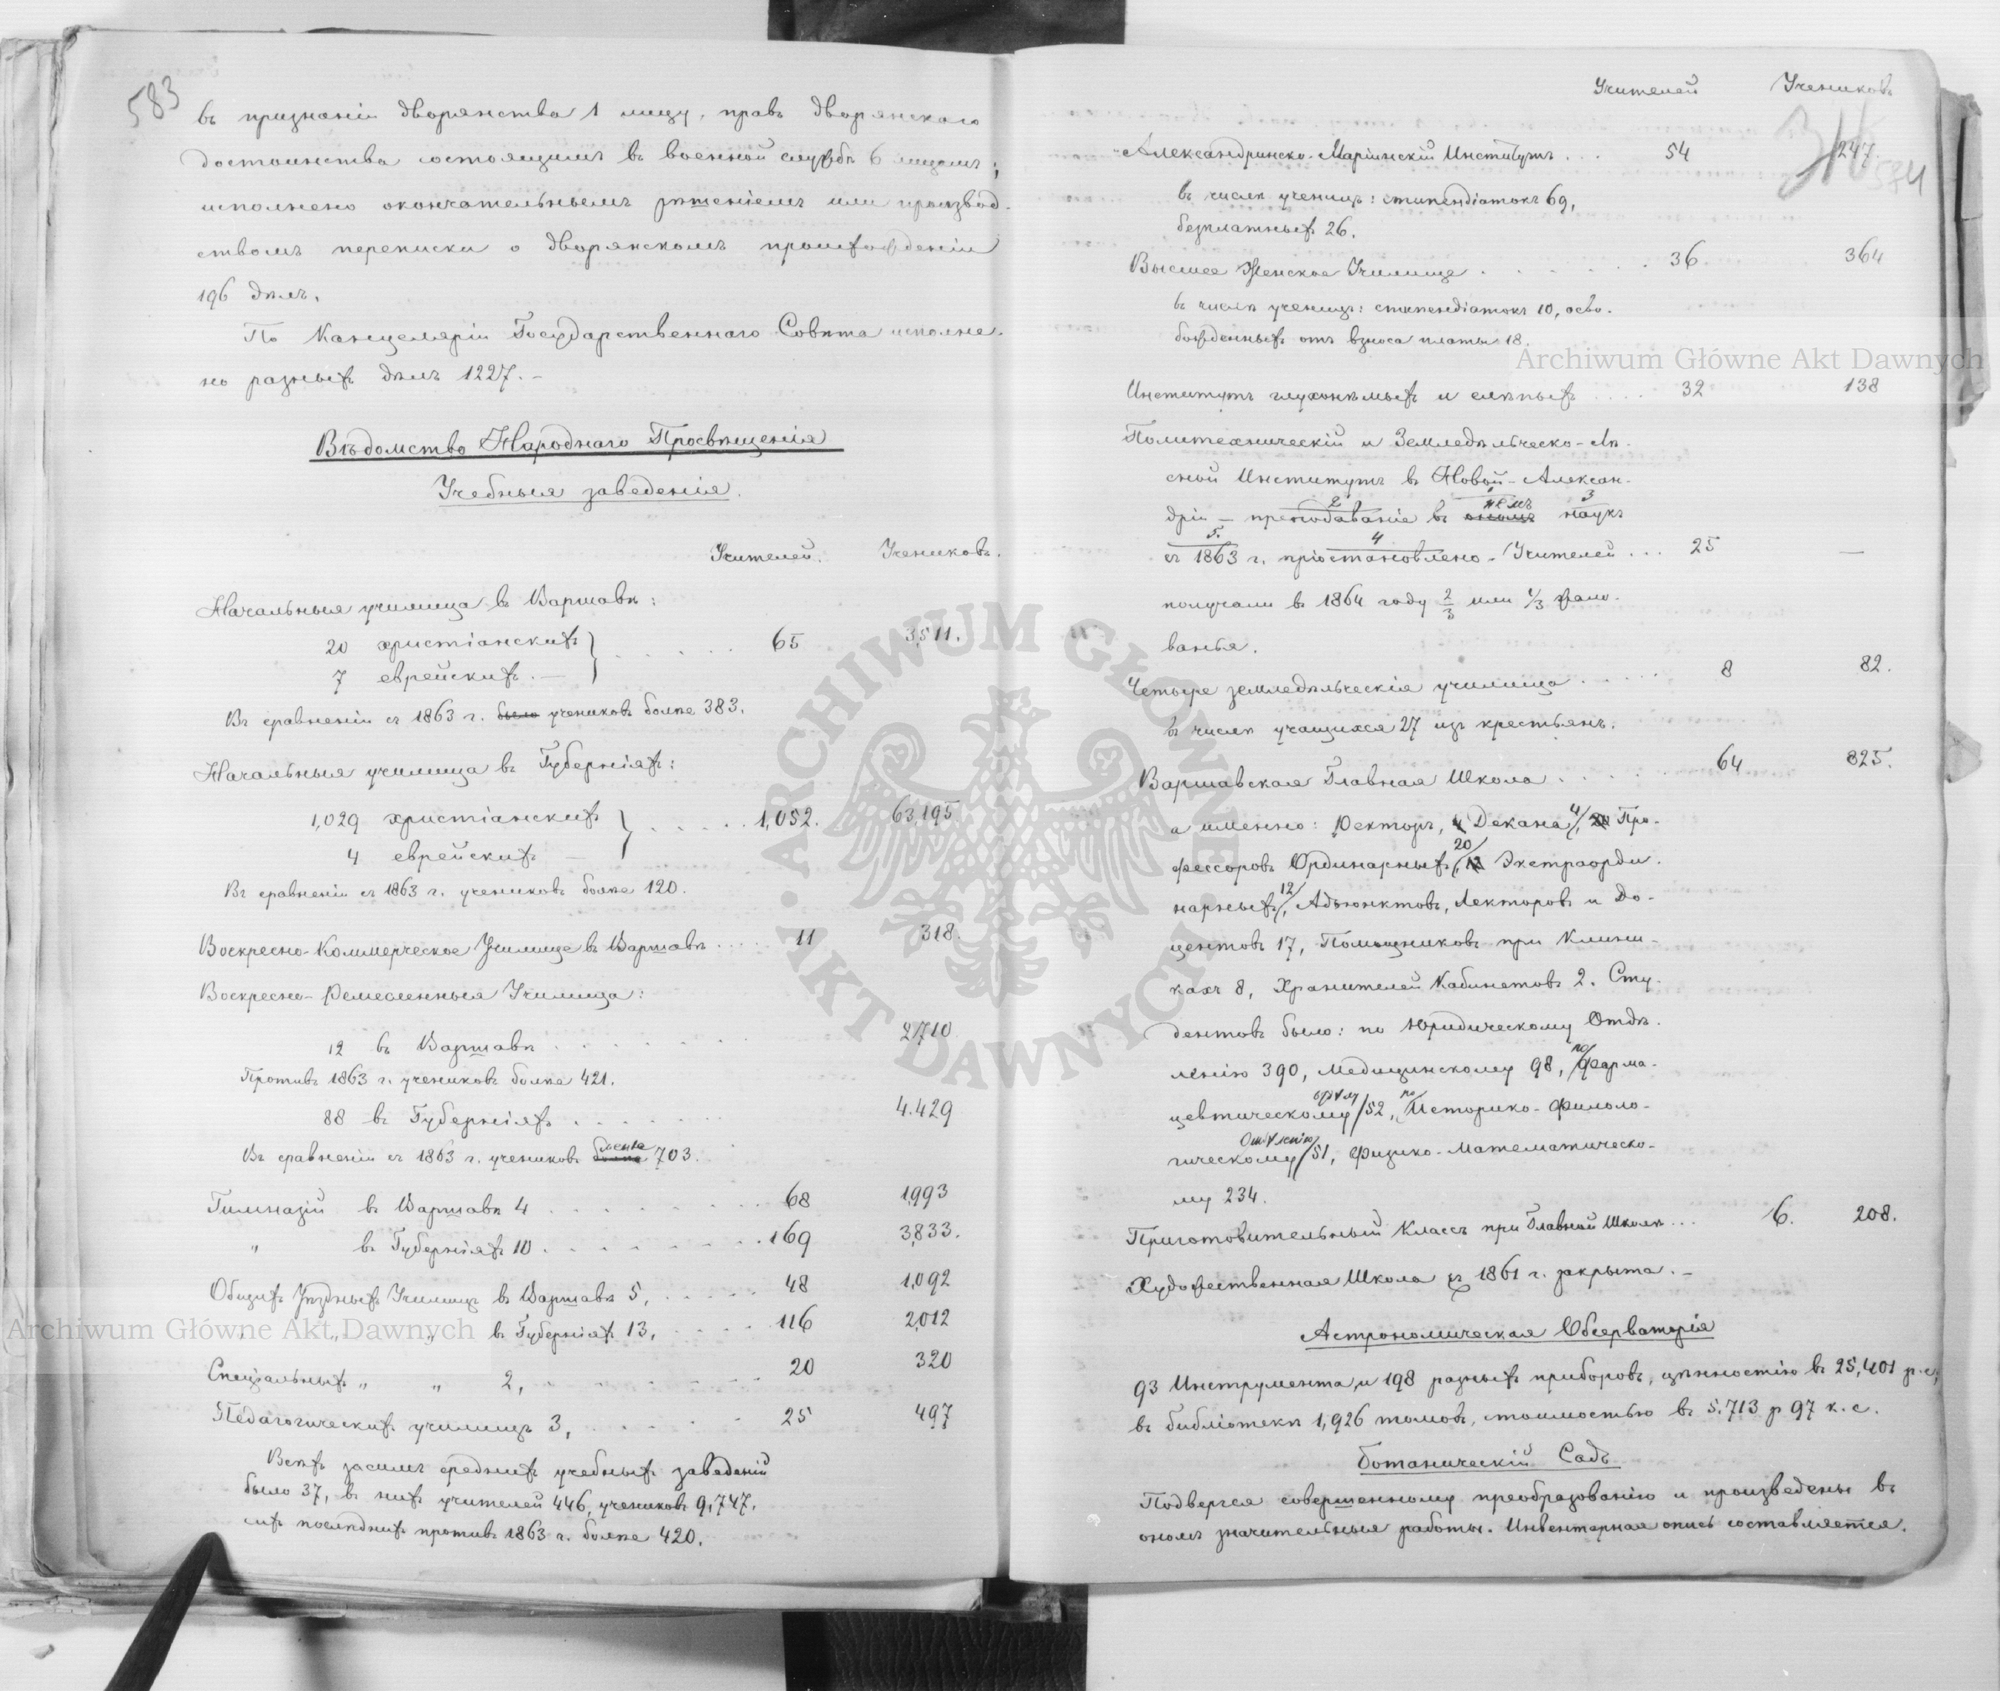 583
въ признаніи дворянства 1 лицу, правъ дворянскаго
достоинства состоящимъ въ военной службѣ 6 лицамъ;
исполнено окончательнымъ рѣшеніемъ или производ-
ствомъ переписки о дворянскомъ происхожденіи
196 дѣлъ.
По Канцеляріи Государственнаго Совѣта исполне-
но разныхъ дѣлъ 1227. –
Вѣдомство Народнаго Просвѣщенія
Учебныя заведенія.
Учителей. Учениковъ.
Начальныя училища въ Варшавѣ:
20 христіанскихъ } . . . . . 65 3,511.
7 еврейскихъ. –
Въ сравненіи съ 1863 г. было учениковъ болѣе 383.
Начальныя училища въ Губерніяхъ:
1,029 христіанскихъ } . . . . . 1,052. 63,195.
4 еврейскихъ –
Въ сравненіи съ 1863 г. учениковъ болѣе 120.
Воскресно-Коммерческое Училище въ Варшавѣ . . . . . 11 318.
Воскресно-Ремесленныя Училища:
12 въ Варшавѣ . . . . . . . 2,710
Противъ 1863 г. учениковъ болѣе 421.
88 въ Губерніяхъ . . . . . . 4.429
Въ сравненіи съ 1863 г. учениковъ болѣе менѣе 703.
Гимназій въ Варшавѣ 4 . . . . . . . 68 1,993
" въ Губерніяхъ 10 . . . . . . . 169 3,833.
Общихъ Уѣздныхъ Училищъ въ Варшавѣ 5, . . . . . 48 1,092
" " " въ Губерніяхъ 13, . . . . . 116 2,012
Спеціальныхъ " " 2, . . . . . . . 20 320
Педагогическихъ училищъ 3, . . . . . . 25 497
Всѣхъ засимъ среднихъ учебныхъ заведеній
было 37, въ нихъ учителей 446, учениковъ 9,747,
сихъ послѣднихъ противъ 1863 г. болѣе 420.
Учителей Учениковъ
584
Александринско-Маріинскій Институтъ . . . 54 247
въ числѣ ученицъ: стипендіатокъ 69,
безплатныхъ 26.
Высшее Женское Училище . . . . . . 36 364
въ числѣ ученицъ: стипендіатокъ 10, осво-
божденныхъ отъ взноса платы 18.
Институтъ глухонѣмыхъ и слѣпыхъ . . . . 32 138
Политехническій и Земледѣльческо-Лѣ-
сной Институтъ въ Новой-Алексан-
дріи – преподаваніе въ ономъ немъ наукъ
съ 1863 г. пріостановлено – Учителей . . . 25 —
получали въ 1864 году 2/3 или 1/3 жало-
ванья.
Четыре земледѣльческія училища . . . . . 8 82.
въ числѣ учащихся 27 изъ крестьянъ.
Варшавская Главная Школа . . . . . 64 825.
а именно: Ректоръ, Декана 4/, Про-
фессоровъ Ординарныхъ 20/, Экстраорди-
нарныхъ 12/, Адъюнктовъ, Лекторовъ и До-
центовъ 17, Помощниковъ при Клини-
кахъ 8, Хранителей Кабинетовъ 2. Сту-
дентовъ было: по Юридическому Отдѣ-
ленію 390, Медицинскому 98, по Фарма-
цевтическому /52, по Историко-Филоло-
гическому Отдѣленію /51, Физико-Математическо-
му 234.
Приготовительный Классъ при Главной Школѣ . . . 6. 208.
Художественная Школа съ 1861 г. закрыта. –
Астрономическая Обсерваторія
93 Инструмента и 198 разныхъ приборовъ, цѣнностію въ 25,401 р.с.,
въ библіотекѣ 1,926 томовъ, стоимостью въ 5.713 р 97 к.с.
Ботаническій Садъ
Подвергся совершенному преобразованію и произведены въ
ономъ значительныя работы. Инвентарная опись составляется.
Archiwum Główne Akt Dawnych
Archiwum Główne Akt Dawnych
ARCHIWUM GŁÓWNE AKT DAWNYCH